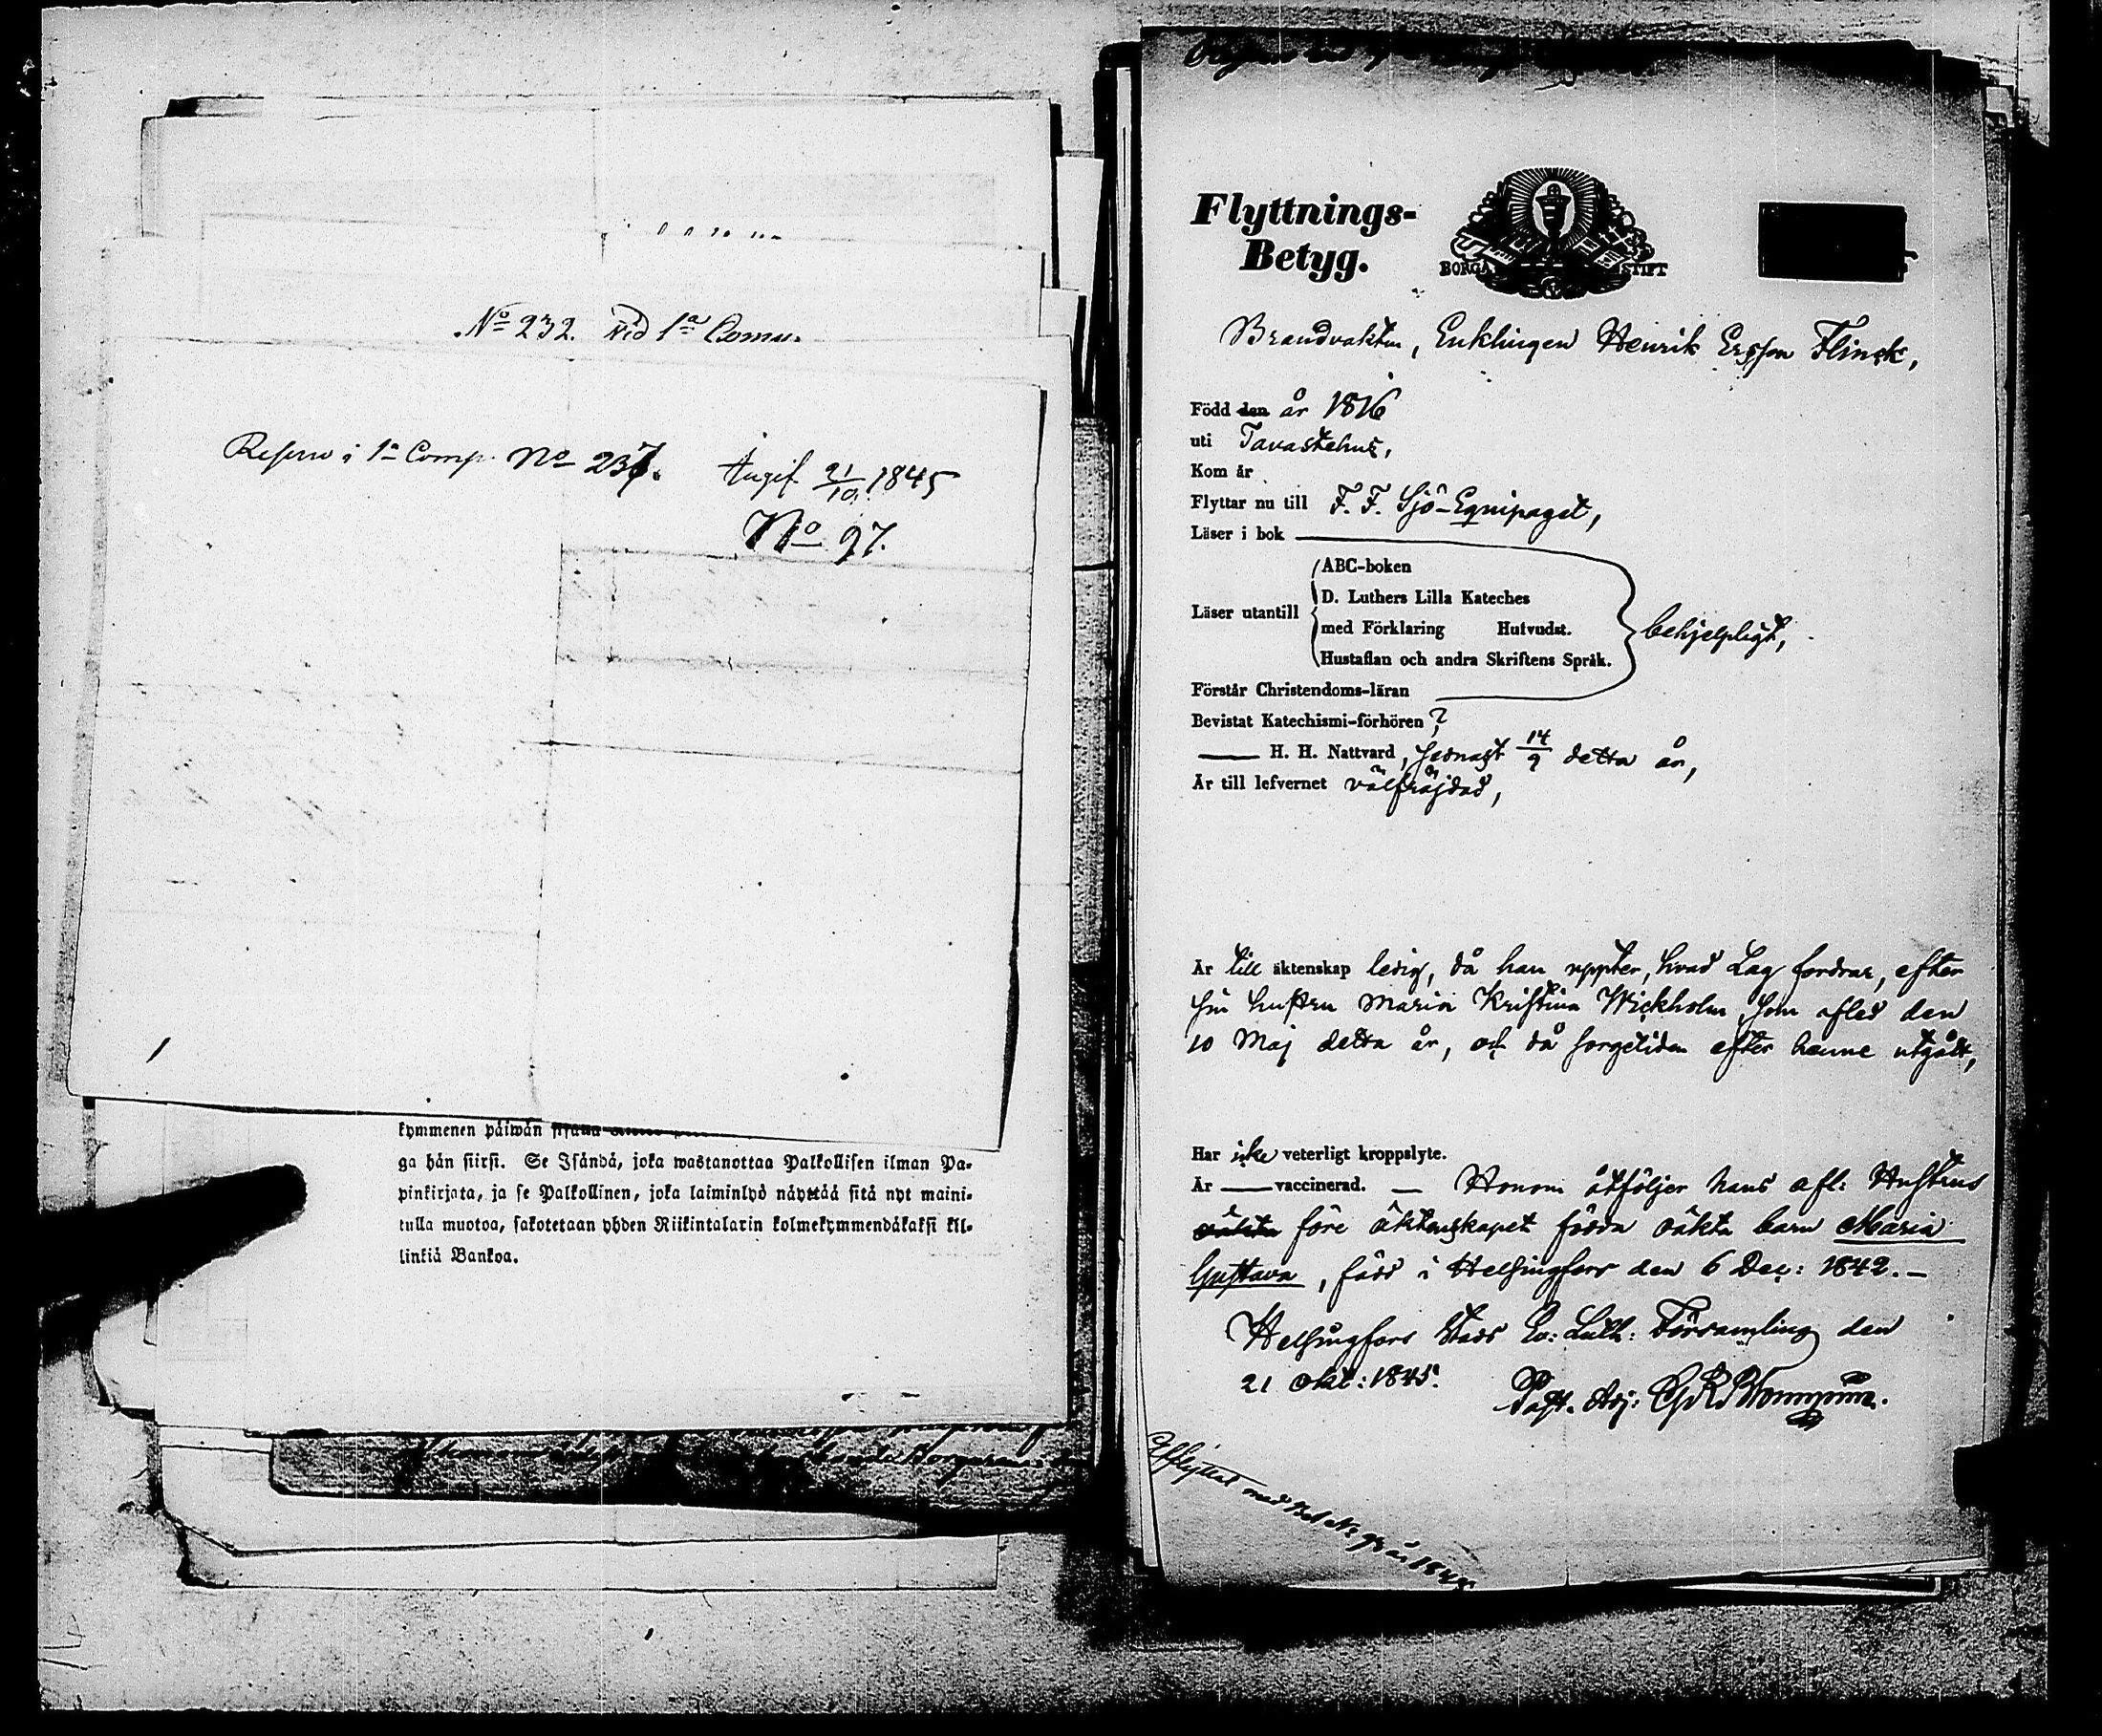 No 232. vid 1a Comp.
Reserv i 1a Comp. No 237. Angif. 21/10 1845
No 97.
kymmenen päiwän
ga hän siirsi. Se Isändä, joka wastanottaa Palkollisen ilman Pa-
pinkirjata, ja se Palkollinen, joka laiminlyö näyttää sitä nyt maini-
tulla muotoa, sakotetaan yhden Riikintalarin kolmekymmendäkaksi kil-
linkiä Bankoa.
Flyttnings-
Betyg.
BORGÅ STIFT
Brandvakten, Enklingen Henrik Ersson Flinck,
Född den år 1816
uti Tavastehus,
Kom år
Flyttar nu till F. F. Sjö-Equipaget,
Läser i bok
ABC-boken
D. Luthers Lilla Kateches
Läser utantill
med Förklaring Hufvudst.
behjelpligt,
Hustaflan och andra Skriftens Språk.
Förstår Christendoms-läran
Bevistat Katechismi-förhören ?
— H. H. Nattvard, sednast 14/9 detta år,
Är till lefvernet välfräjdad,
Är till äktenskap ledig, då han uppter, hvad Lag fordrar, efter
sin hustru Maria Kristina Wickholm, som afled den
10 Maj detta år, och då sorgetiden efter henne utgått,
Har icke veterligt kroppslyte.
Är — vaccinerad. — Honom åtföljer hans afl: Hustrus
före äktenskapet födda oäkta barn Maria
Gustava, född i Helsingfors den 6 Dec: 1842. —
Helsingfors Stads Ev: Luth: Församling den
21 Okt: 1845.
Past. Adj: